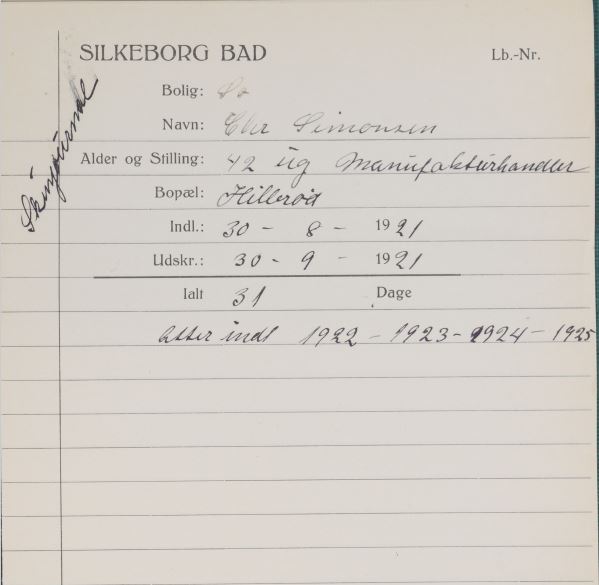 SILKEBORG BAD Lb.-Nr.
Bolig: So
Navn: Chr Simonsen
Alder og Stilling: 42 ug Manufakturhandler
Bopæl: Hillerød
Indl.: 30 - 8 - 1921
Udskr.: 30 - 9 - 1921
Ialt 31 Dage
atter indl 1922 - 1923 - 1924 - 1925